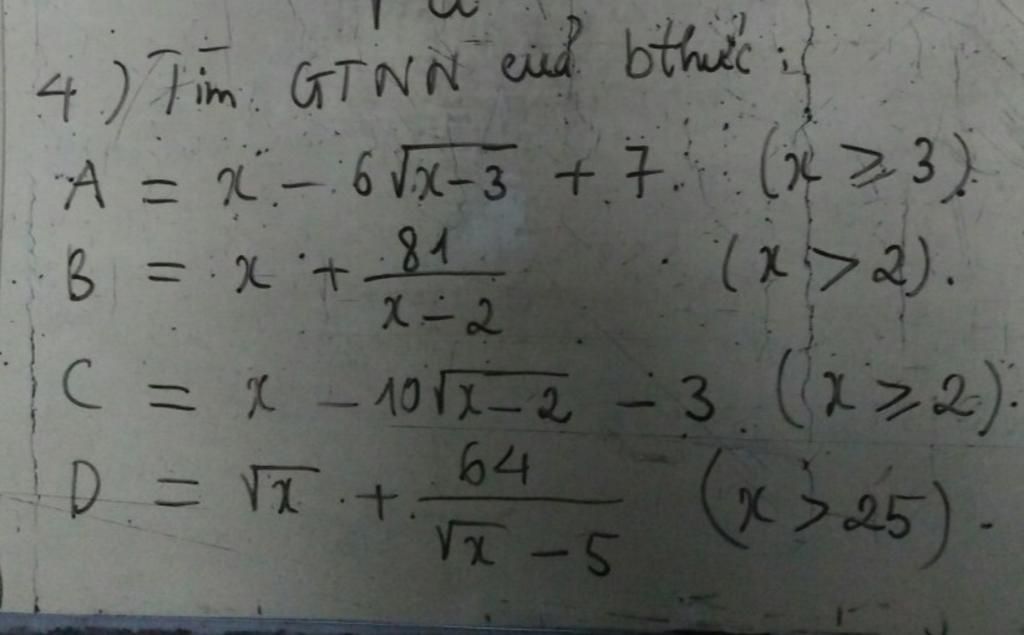 4) Tìm GTNN của bthức:
A = x - 6√(x-3) + 7 (x ≥ 3).
B = x + 81/(x-2) (x > 2).
C = x - 10√(x-2) - 3 (x ≥ 2).
D = √x + 64/(√x - 5) (x > 25).